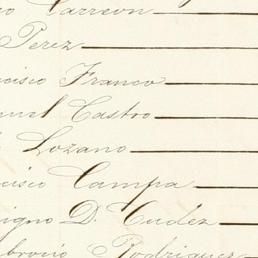 o Carreon
Perez
cisco Franco
uel Castro
Lozano
cisco Campa
igno D. Cudez
brocio Rodriguez